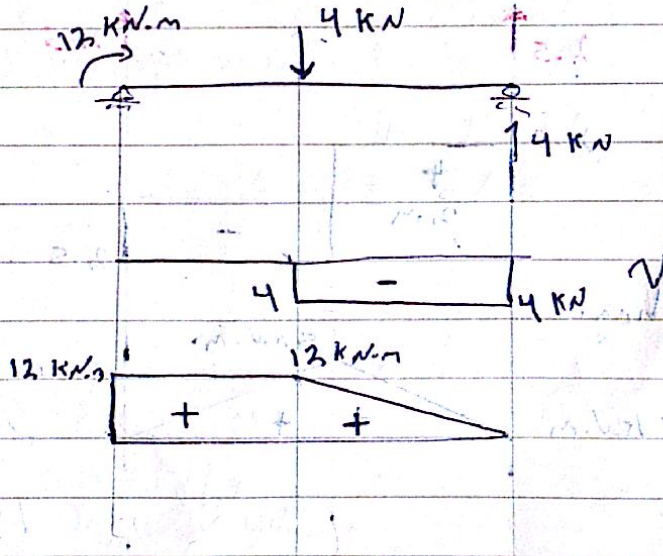 12 KN.m
4 KN
4 KN
-
4
4 KN
V
12 KN.m
12 KN.m
+
+